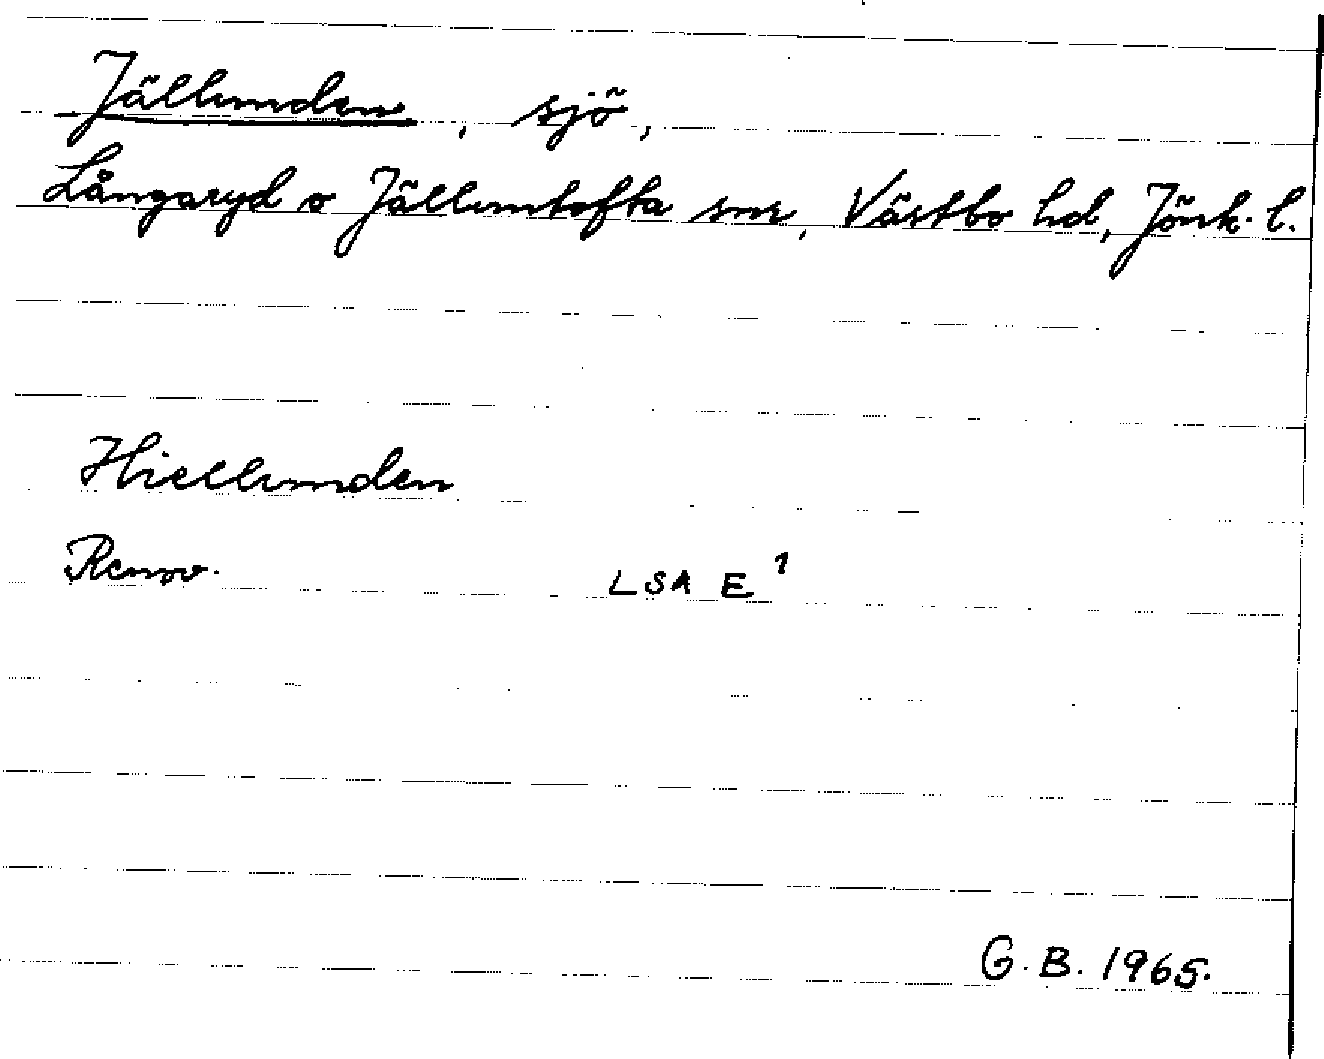 Jällunden, sjö,
Långaryd o Jälluntofta snr, Västbo hd, Jönk. l.
Hiellunden
Renov. LSA E¹
G.B. 1965.